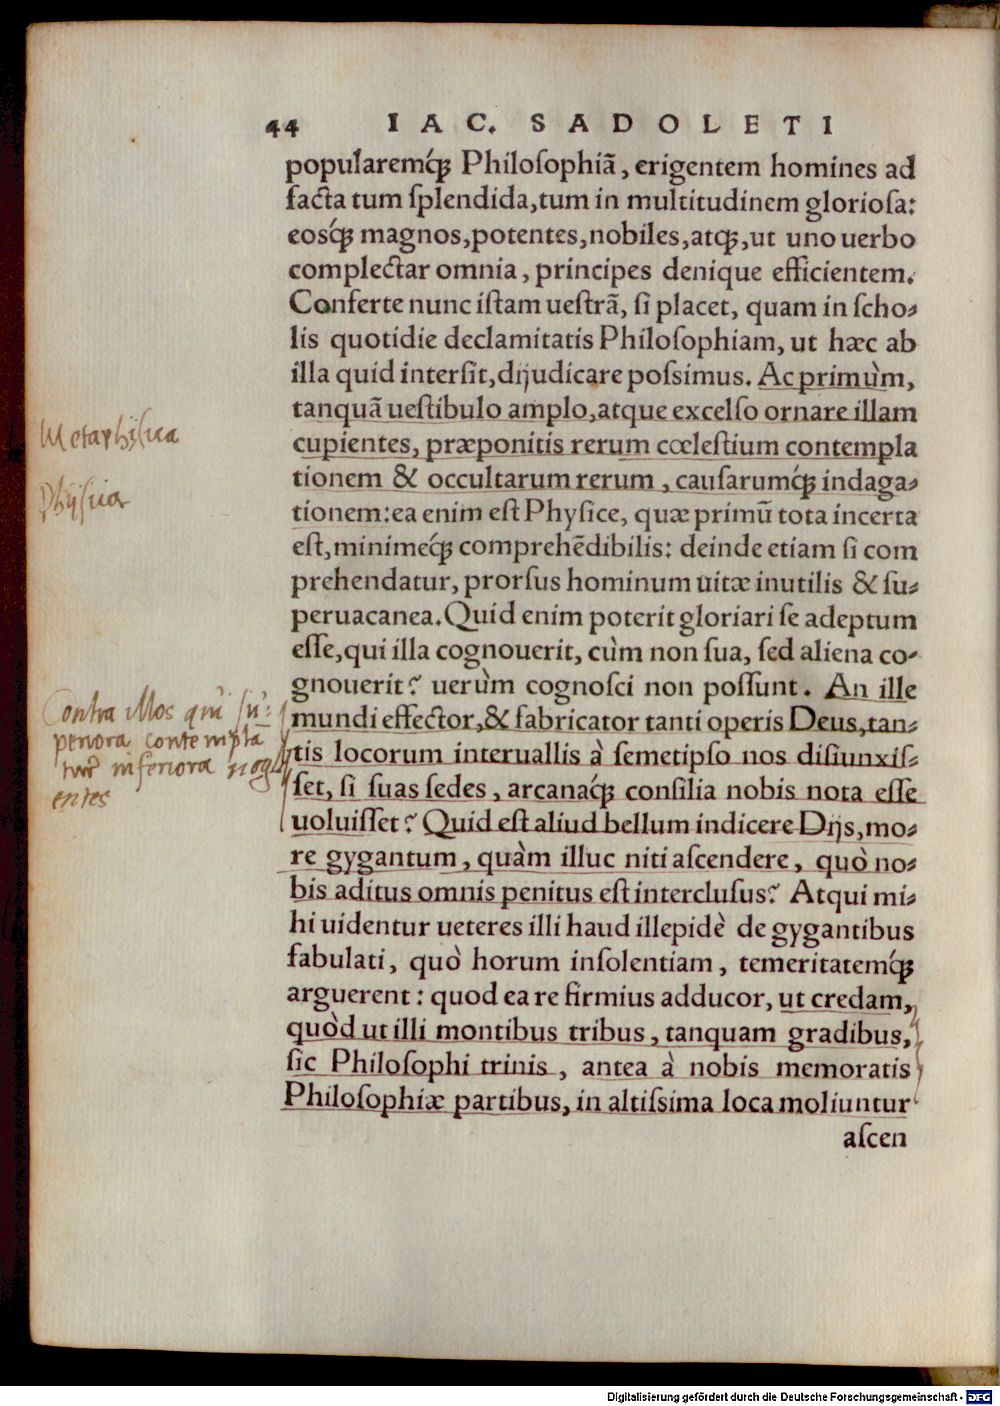 44 IAC. SADOLETI
popularemq́ꝫ Philoſophiã, erigentem homines ad
facta tum ſplendida, tum in multitudinem glorioſa:
eosq́ꝫ magnos, potentes, nobiles, atqꝫ, ut uno uerbo
complectar omnia, principes denique efficientem.
Conferte nunc iſtam ueſtrã, ſi placet, quam in ſcho-
lis quotidie declamitatis Philoſophiam, ut hæc ab
illa quid interſit, dijudicare poſsimus. Ac primùm,
tanquã ueſtibulo amplo, atque excelſo ornare illam
cupientes, præponitis rerum cœleſtium contempla
tionem & occultarum rerum, cauſarumq́ꝫ indaga-
tionem: ea enim eſt Phyſice, quæ primũ tota incerta
eſt, minimeq́ꝫ comprehẽdibilis: deinde etiam ſi com
prehendatur, prorſus hominum uitæ inutilis & ſu-
peruacanea. Quid enim poterit gloriari ſe adeptum
eſſe, qui illa cognouerit, cùm non ſua, ſed aliena co-
gnouerit? uerùm cognoſci non poſſunt. An ille
mundi effector, & fabricator tanti operis Deus, tan-
tis locorum interuallis à ſemetipſo nos diſiunxiſ-
ſet, ſi ſuas ſedes, arcanaq́ꝫ conſilia nobis nota eſſe
uoluiſſet? Quid eſt aliud bellum indicere Dijs, mo-
re gygantum, quàm illuc niti aſcendere, quò no-
bis aditus omnis penitus eſt intercluſus? Atqui mi-
hi uidentur ueteres illi haud illepidè de gygantibus
fabulati, quò horum inſolentiam, temeritatemq́ꝫ
arguerent: quod ea re firmius adducor, ut credam,
quòd ut illi montibus tribus, tanquam gradibus,
ſic Philoſophi trinis, antea à nobis memoratis
Philoſophiæ partibus, in altiſsima loca moliuntur
aſcen
Metaphyſica
Phyſica
Contra illos qui ſu-
periora contempla
tur inferiora negli
entes
Digitalisierung gefördert durch die Deutsche Forschungsgemeinschaft - DFG